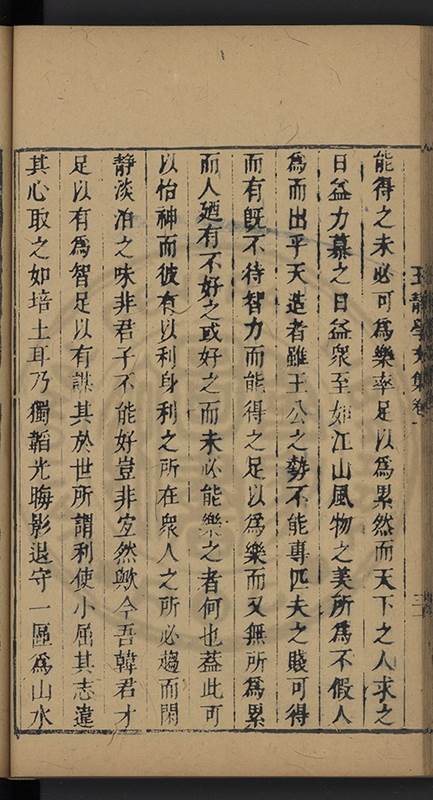 能得之未必可為樂率足以為累然而天下之人求之
日益力慕之日益衆至如江山風物之美所為不假人
為而出乎天造者雖王公之勢不能專匹夫之賤可得
而有既不待智力而能得之足以為樂而又無所為累
而人廼有不好之或好之而未必能樂之者何也蓋此可
以怡神而彼有以利身利之所在衆人之所必趨而閑
靜淡泊之味非君子不能好豈非寔然歟今吾韓君才
足以有為智足以有謀其於世所謂利使小屈其志違
其心取之如培土耳乃獨韜光晦影退守一區為山水